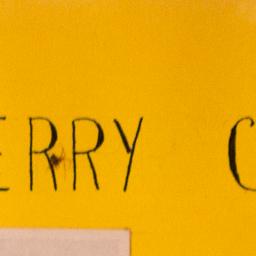 ERRY C